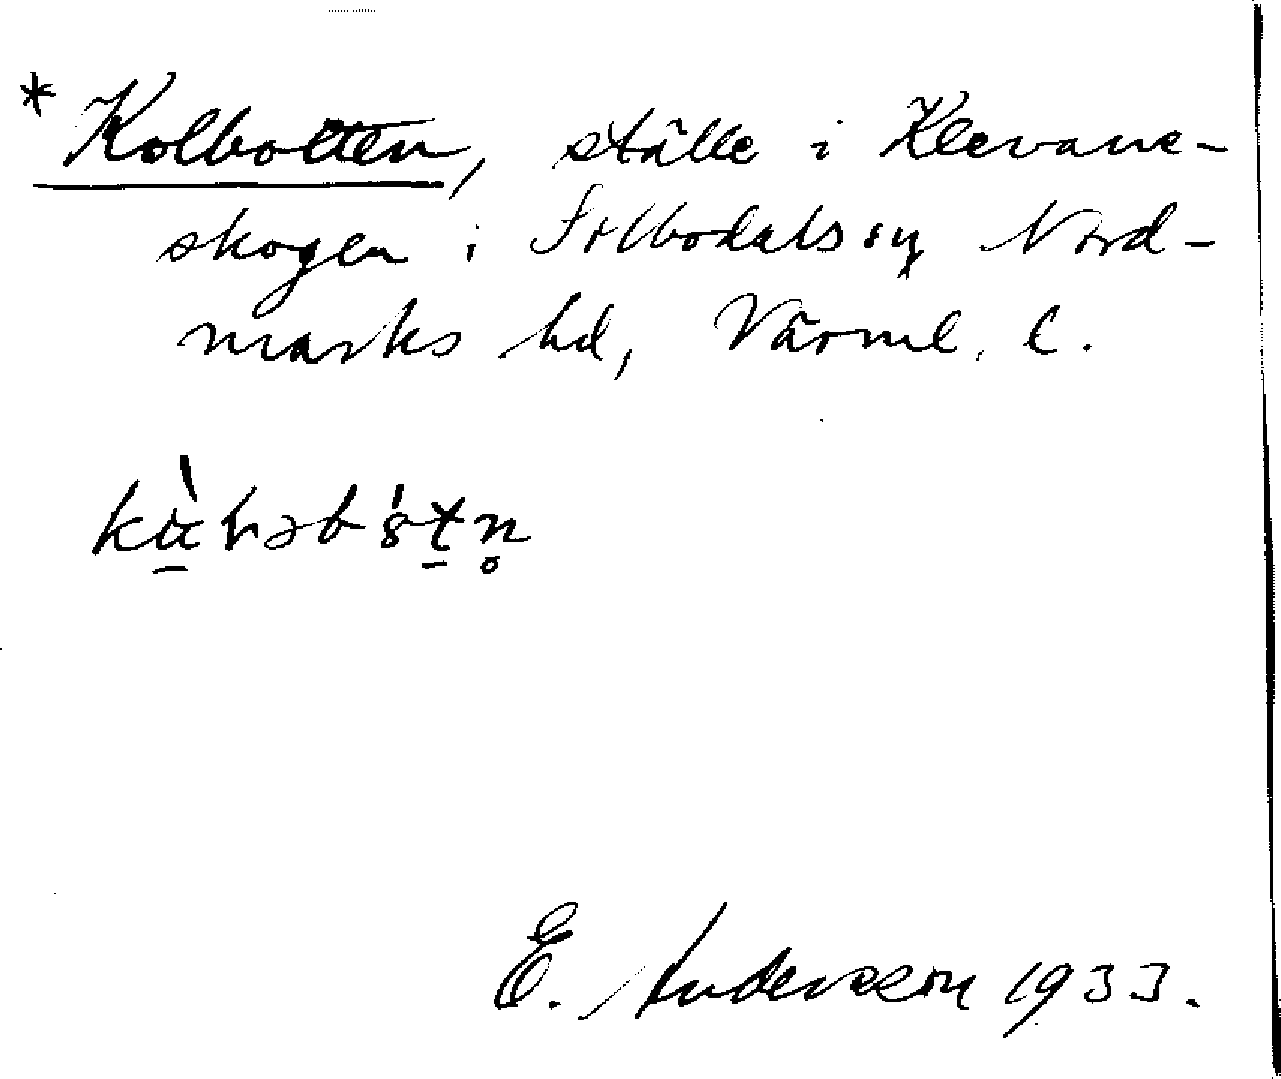 * Kolbotten, ställe i Klevane-
skogen i Silbodals sn, Nord-
marks hd, Värml. l.
E. Andersson 1933.